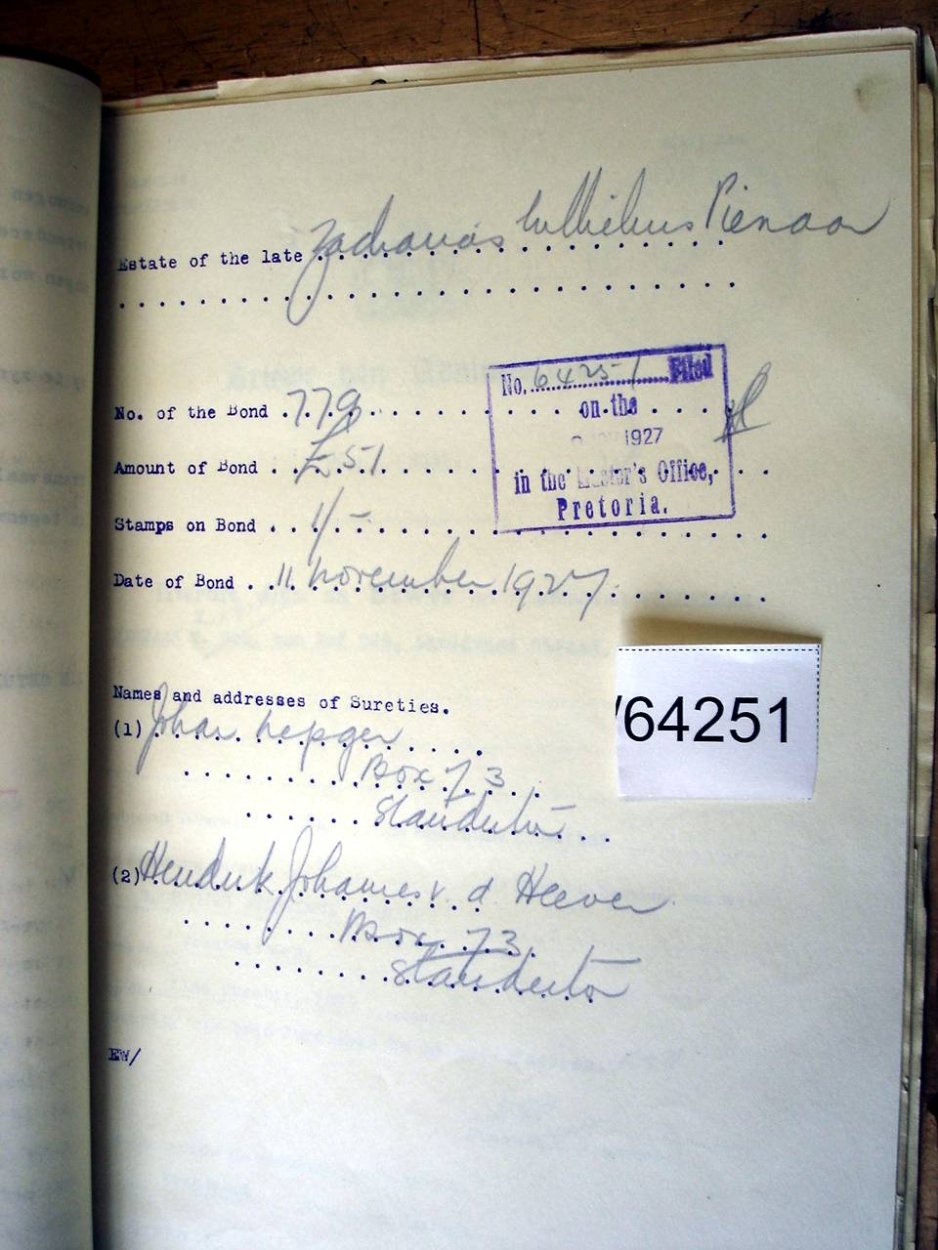 Estate of the late Zacharias Wilhelmus Pienaar
No. 64251 Filed
on the
1927
in the Master's Office,
Pretoria.
No. of the Bond 779
Amount of Bond £51
Stamps on Bond 1/-
Date of Bond 11 november 1927
/64251
Names and addresses of Sureties.
(1) Johan
Box 73
Standerton
(2) Hendrik Johannes v. d. Heever
Box 73
Standerton
EW/